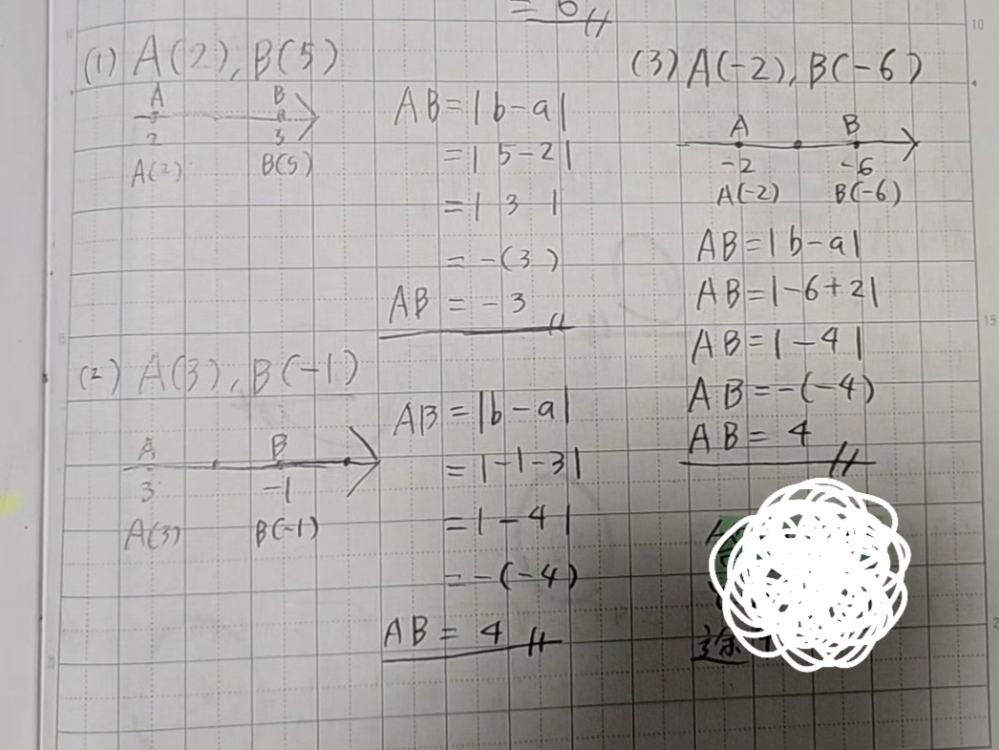 = 6
(1) A(2), B(5)
A B
2 3
A(2) B(5)
AB = |b-a|
= | 5-2|
= | 3 |
= -(3)
AB = -3
(2) A(3), B(-1)
A B
3 -1
A(3) B(-1)
AB = |b-a|
= |-1-3|
= |-4|
= -(-4)
AB = 4
(3) A(-2), B(-6)
A B
-2 -6
A(-2) B(-6)
AB = |b-a|
AB = |-6+2|
AB = |-4|
AB = -(-4)
AB = 4
途
10
15